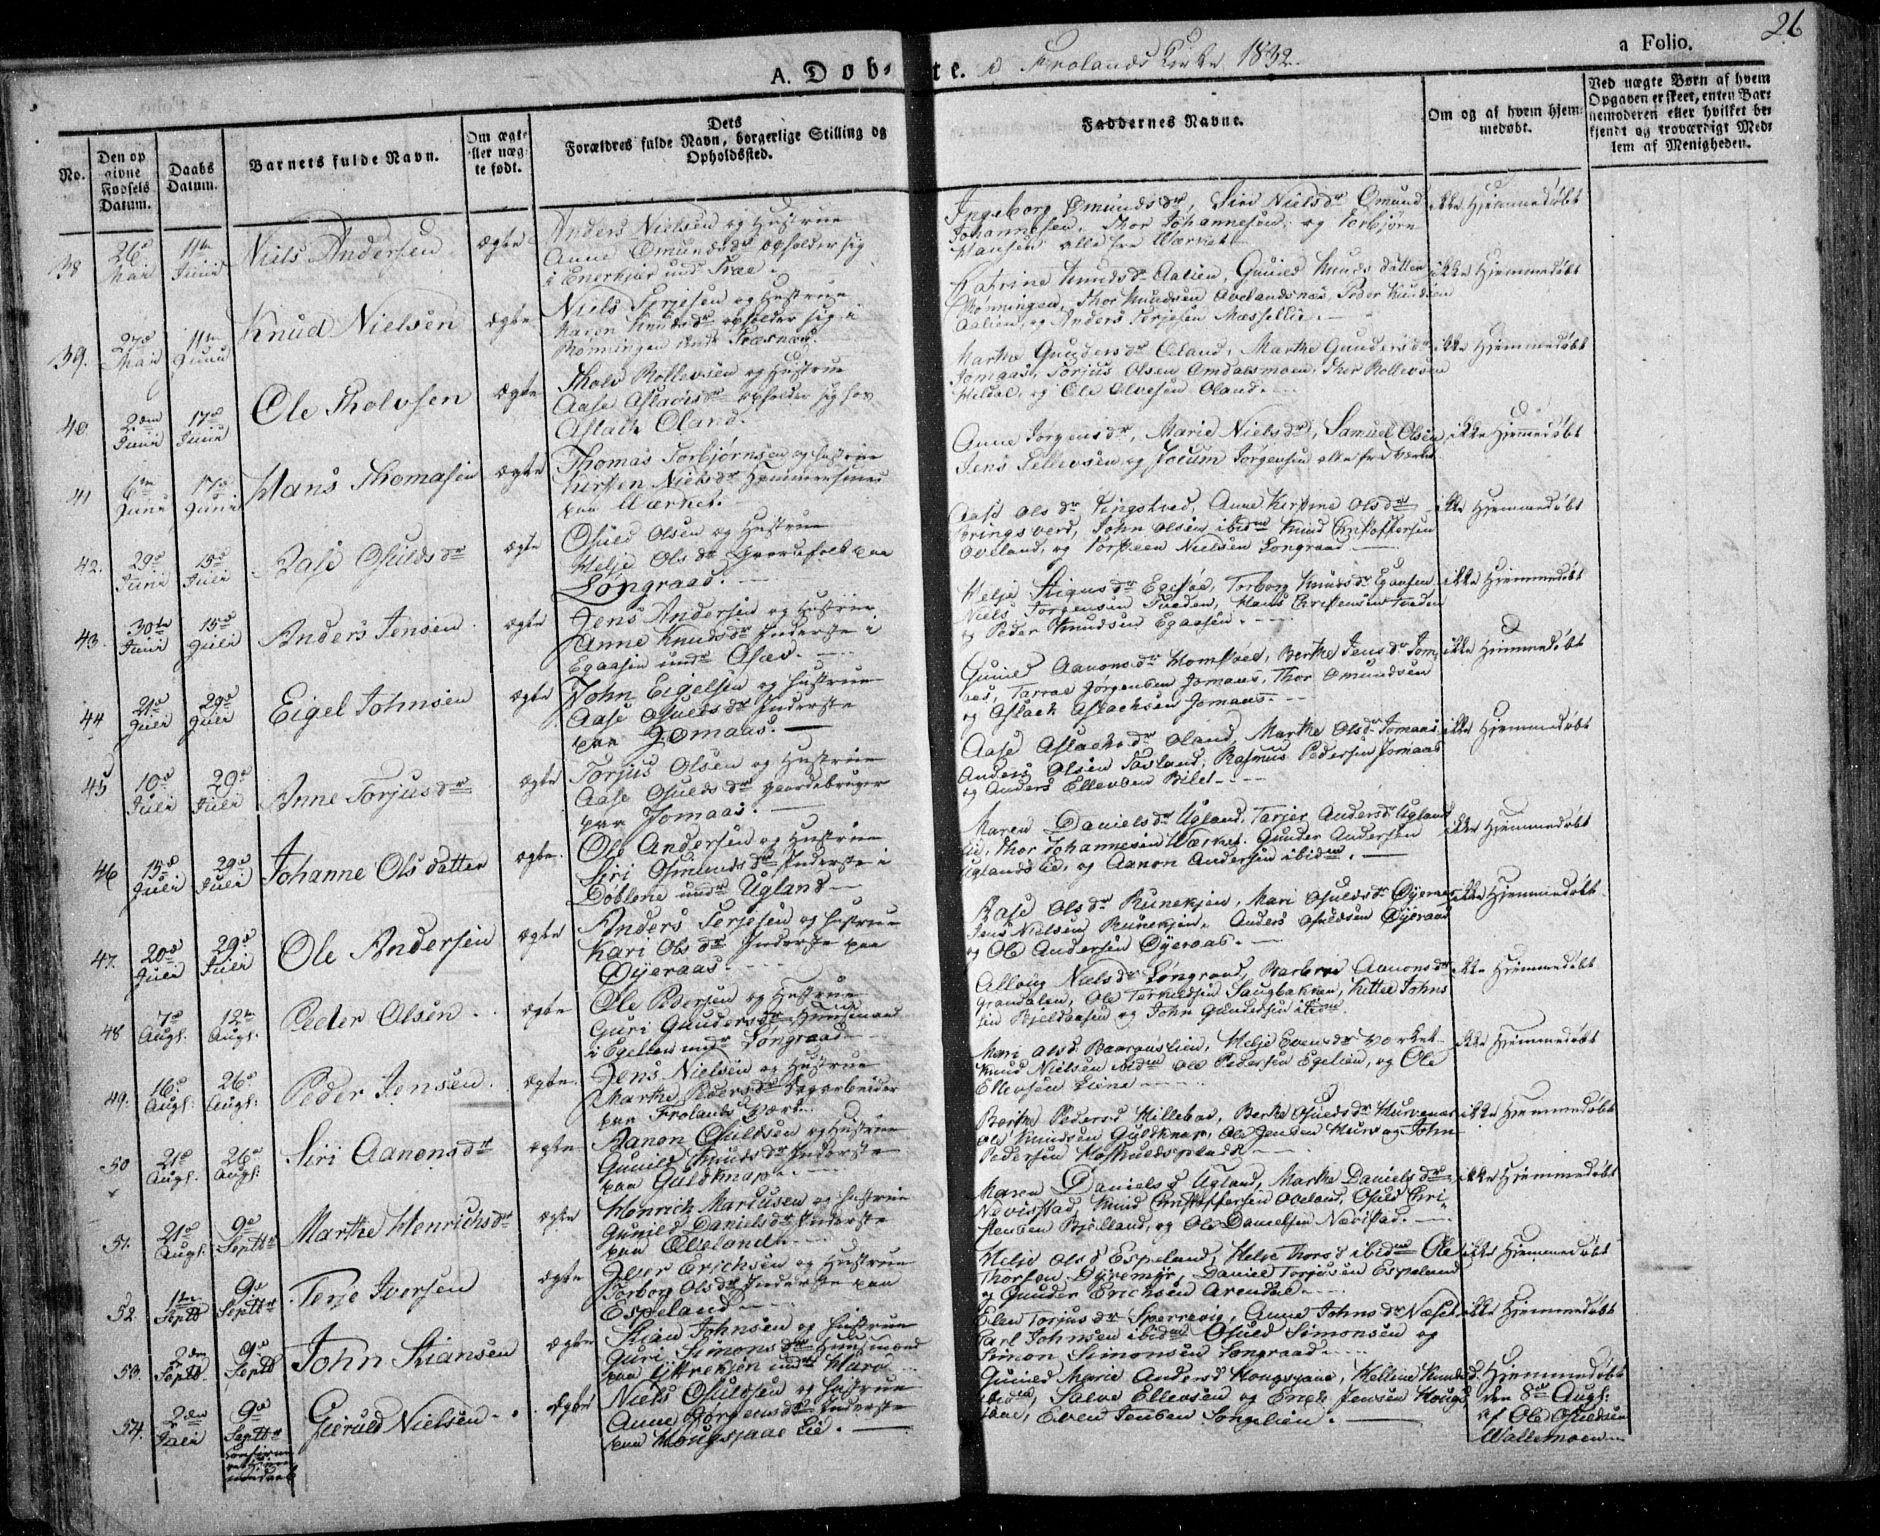 26
A. Døb- te. i Frolands Kirke 1832.
a Folio.
No.
Den op
givne
Fødsels
Datum.
Daabs
Datum.
Barnets fulde Navn.
Om ægte
eller uæg-
te født.
Dets
Forældres fulde Navn, borgerlige Stilling og
Opholdssted.
Faddernes Navne.
Om og af hvem hjem-
medøbt.
Ved uægte Børn af hvem
Opgaven er skeet, enten Bar-
nemoderen eller hvilket be-
kjendt og troværdigt Med-
lem af Menigheden.
38
26
Mai
11te
Junii
Niels Andersen
ægte
Anders Nielsen og Hustrue
Anne Omundsdr opholder sig
i Enerkiær undr Træe.
Ingeborg Omundsdr, Siri Nielsdr Omund
Johannesen, Thor Johannesen og Torbjørn
Hansen alle fra Værket
ikke Hjemmedøbt
39.
27d
Mai
11te
Junii
Knud Nielsen
ægte
Niels Terjesen og Hustrue
Karen Knudsdr opholder sig i
Rønningen undr Træsnæs.
Katrine Knudsdr Aalien, Gunild Knuds datter
Rønningen, Thor Knudsen Ovelandsnæs, Peder Knudsen
Aalien, og Anders Terjesen Messellie.
ikke Hjemmedøbt
40
2den
Junii
17d
Junii
Ole Tholvsen
ægte
Tholv Rollevsen og Hustrue
Aase Aslachsdr opholder sig hos
Aslach Oland.
Marthe Gundersdr Oland, Marthe Gundersdr
Jomaas, Torjus Olsen Omdalsmoen, Thor Rollevsen
Heldal, og Ole Olvesen Oland.
ikke Hjemmedøbt
41
6te
Junii
17d
Junii
Hans Thomasen
ægte
Thomas Torbjørnsen og Hustrue
Kirsten Nielsdr Hammersmed
paa Værket.
Anne Jørgensdr, Marie Nielsdr, Samuel Olsen
Jens Tellevsen og Jocum Jørgensen alle fra Værket
ikke Hjemmedøbt
42.
29d
Junii
15d
Juli
Aase Osulds dr
ægte
Osuld Olsen og Hustrue
Helje Olsdr Gaardfolk paa
Løngraad.
Aase Olsdr Tingstved, Anne Kirstine Olsdr
Tringsverd, John Olsen ibidm Knud Christophersen
Oveland, og Torsteen Nielsen Longraad
ikke Hjemmedøbt
43.
30te
Junii
15d
Juli
Anders Jensen
ægte
Jens Andersen og Hustrue
Anne Knudsdr Inderste i
Egaasen undr Osæv.
Helje Stigusdr Egeskoe, Torborg Knudsdr Egaasen
Niels Jørgensen Tveden, Hans Christensen Tveden
og Peder Knudsen Egaasen.
ikke Hjemmedøbt
44
21d
Juli
29d
Juli
Eigel Johnsen
ægte
John Eigelsen og Hustrue
Aase Osuldsdr Inderste
paa Jomaas.
Gunild Aanonsdr Homstved, Berthe Jensdr Jom-
aas, Tarral Jørgensen Jomaas, Thor Omundsen
og Aslach Aslachsen Jomaas
ikke Hjemmedøbt
45
10d
Juli
29d
Juli
Anne Torjusdr
ægte
Torjus Olsen og Hustrue
Aase Osuldsdr Gaardbruger
paa Jomaas.
Aase Aslachsdr Oland, Marthe Olsdr Jomaas
Anders Olsen Tasland, Rasmus Pedersen Jomaas
og Anders Ellevsen Bilet
ikke Hjemmedøbt
46
15d
Juli
29d
Juli
Johanne Ols datter
ægte.
Ole Andersen og Hustrue
Siri Osmundsdr Inderste i
Døblene undr Ugland
Maren Danielsdr Ugland, Tarjer Andersdr Ugland
lid, Thor Johannesen Værket, Gunder Andersen
Uglandslid, og Aanon Andersen ibidm.
ikke Hjemmedøbt
47.
20d
Juli
29d
Juli
Ole Andersen
ægte
Anders Terjesen og Hustrue
Kari Olsdr Inderste paa
Øyeraas.
Aase Olsdr Runekjen, Mari Osuldsdr Øyeraas
Jens Nielsen Runekjen, Anders Osuldsen Øyeraas
og Ole Andersen Øyeraas.
ikke Hjemmedøbt
48
7d
Augs.
12te
Augs.
Peder Olsen
ægte
Ole Pedersen og Hustrue
Guri Gundersdr Huusmand
i Egelien undr Longraad
Allvig Nielsdr Longraad, Barbroe Aanonsdr
Grandalen, Ole Terkildsen Saugbakken, Kittel Johns
sen Bjeldaasen og John Gundersen ibidm
ikke Hjemmedøbt
49.
16d
Augs:
26d
Augs:
Peder Jensen
ægte.
Jens Nielsen og Hustrue
Marthe Pedersdr Dagarbeider
paa Frolands Værk
Mari Olsd. Baaraaslien, Helje Evensdr Værket
Knud Nielsen ibidm Ole Pedersen Egelien, og Ole
Ellevsen Liene
ikke Hjemmedøbt
50
21d
Augs:
26d
Augs:
Siri Aanonsdr
ægte
Aanon Osuldsen og Hustrue
Gunild Knudsdr Inderste
paa Guldknap.
Berthe Pedersd Hillebae, Berthe Osuldsdr Hurvenæs
Ole Knudsen Guldknap, Ole Jensen Hurv og John
Pedersen Hoskuldsplads
ikke Hjemmedøbt
51.
21d
Augs:
9d
Septbr
Marthe Henrichsdr
ægte
Henrich Markusen og Hustrue
Gunild Danielsdr Inderste
paa Oveland.
Maren Daniels d Ugland, Marthe Daniels dr
Nevisstad, Knud Christophersen Oveland, Osuld Chri-
stensen Bjelland, og Ole Danielsen Nævistad.
ikke Hjemmedøbt
52.
1te
Septb
9d
Septbr
Terje Iversen
ægte
Iver Erichsen og Hustrue
Torborg Olsdr Inderste paa
Espeland
Helje Olsd Espeland, Helje Thorsd ibidm Ole
Thorsen Dyremyr, Daniel Torjusen Espeland
og Gunder Erichsen Arendal.
ikke Hjemmedøbt
53.
2den
Septb
9d
Septb
John Stiansen
ægte
Stian Johnsen og Hustrue
Guri Simonsdr Huusmand
paa undr Hurv
Elen Torjusdr Sparrevig, Anne Johnsdr Næset
Carl Johnsen ibidm Osuld Simonsen og
Simon Simonsen Longraad
ikke Hjemmedøbt
54.
2den
Juli
9d
Septbr
Gjeruld Nielsen
ægte
Niels Osuldsen og Hustrue
Anne Jørgensdr Inderste
paa Hougsjaae Lid.
Gunild Marie Andersd Hougsjaae, Helline Knudsd.
ibidm, Salve Ellevsen og Erich Jensen Hougs
jaae, Even Jensen Songelien.
Hjemmedøbt
den 8de Augs:
af Ole Osuldsen
Wallemoen